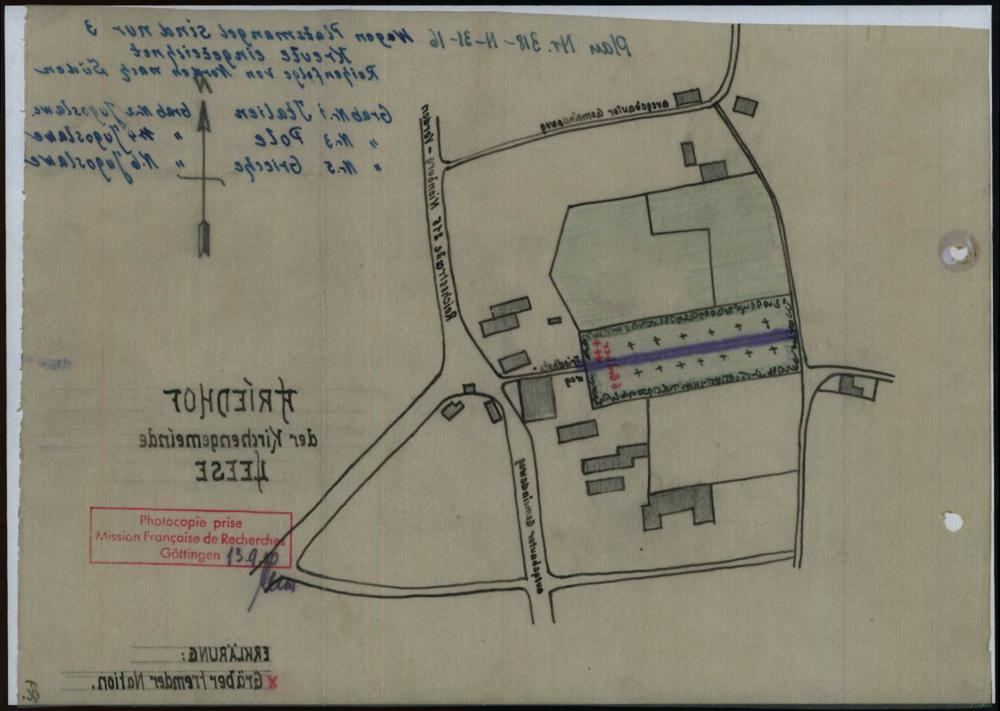 Plan Nr. 318-N-31-16
Wegen Platzmangel sind nur 3
Kreute eingezeichnet
Reihenfolge von Norden nach Süden
Grab Nr. 1 Italien
Grab Nr. 2 Jugoslawe
" Nr. 3 Pole
" Nr. 4 Jugoslawe
" Nr. 5 Grieche
" Nr. 6 Jugoslawe
N
ausgebauter Gemeindeweg
Reichsstraße 215 Nienburg - Verden
Friedhofs-
weg
6 Gräber
ausgebauter Gemeindeweg
FRIEDHOF
der Kirchengemeinde
LEESE
Photocopie prise
Mission Française de Recherches
Göttingen 13.9.
ERKLÄRUNG:
x Gräber fremder Nation.